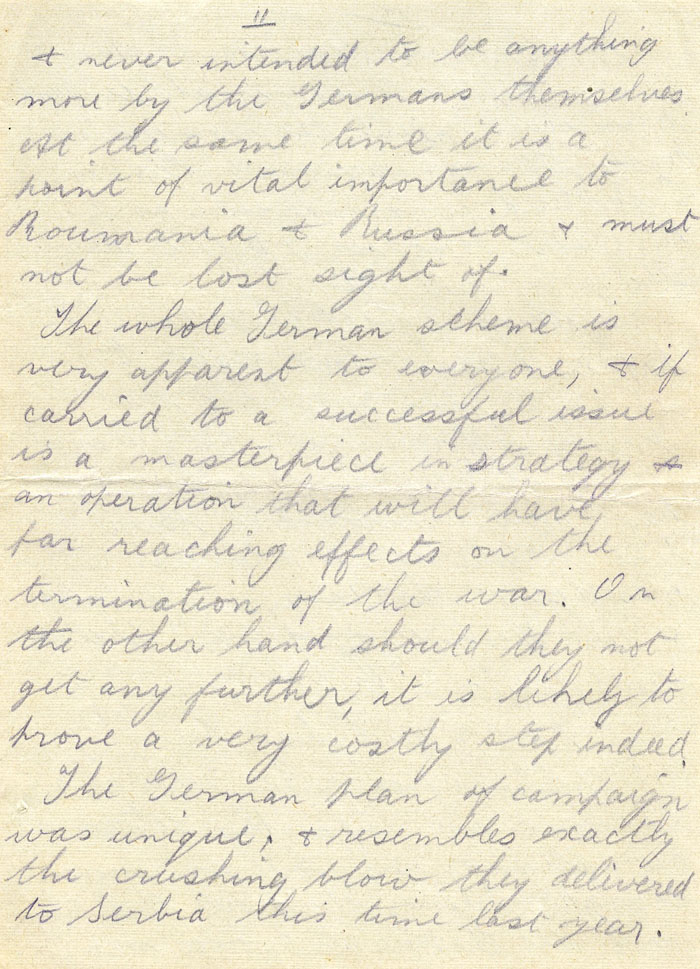 11
& never intended to be anything
more by the Germans themselves
At the same time it is a
point of vital importance to
Roumania & Russia & must
not be lost sight of.
The whole German scheme is
very apparent to everyone, & if
carried to a successful issue
is a masterpiece in strategy &
an operation that will have
far reaching effects on the
termination of the war. On
the other hand should they not
get any further, it is likely to
prove a very costly step indeed.
The German plan of campaign
was unique, & resembles exactly
the crushing blow they delivered
to Serbia this time last year.